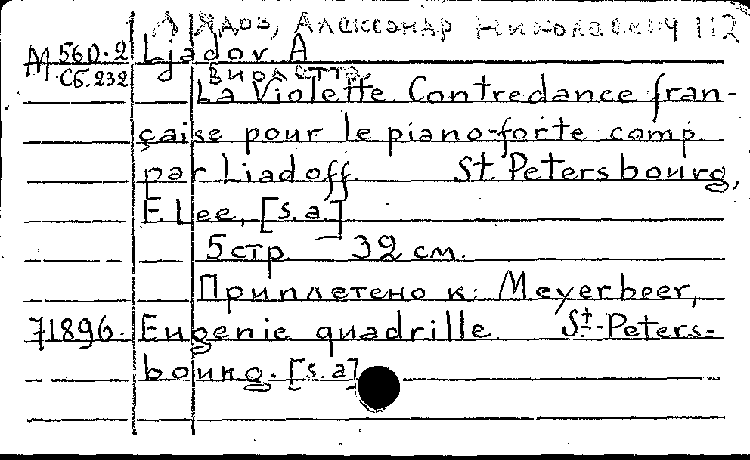 Лядов, Александр Николаевич 112
М 560.2 Ljadov A
Сб. 232 Виолетта
La Violette. Contredance fran-
çaise pour le piano-forte comp.
par Liadoff. St. Petersbourg,
E. Lee, [s.a.]
5 стр 32 см.
Приплетено к: Meyerbeer,
71896. Eugenie quadrille St.-Peters-
bourg. [s.a]